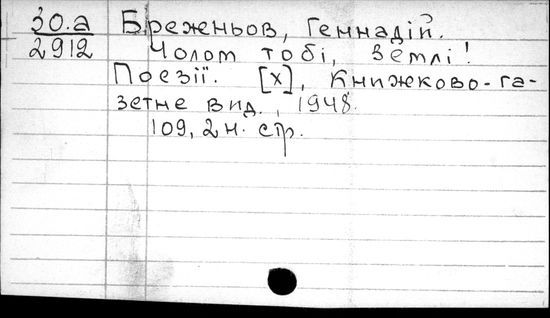 30.а Бреженьов, Геннадій.
2912 Чолом тобі, земле!
Поезії. [Х], Книжково-га-
зетне вид., 1948.
109, 2 н. стр.